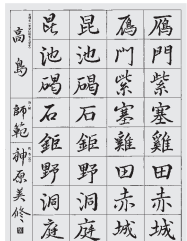 雁門紫塞雞田赤城
雁門紫塞雞田赤城
昆池碣石鉅野洞庭
昆池碣石鉅野洞庭
高島
師範 神原美修